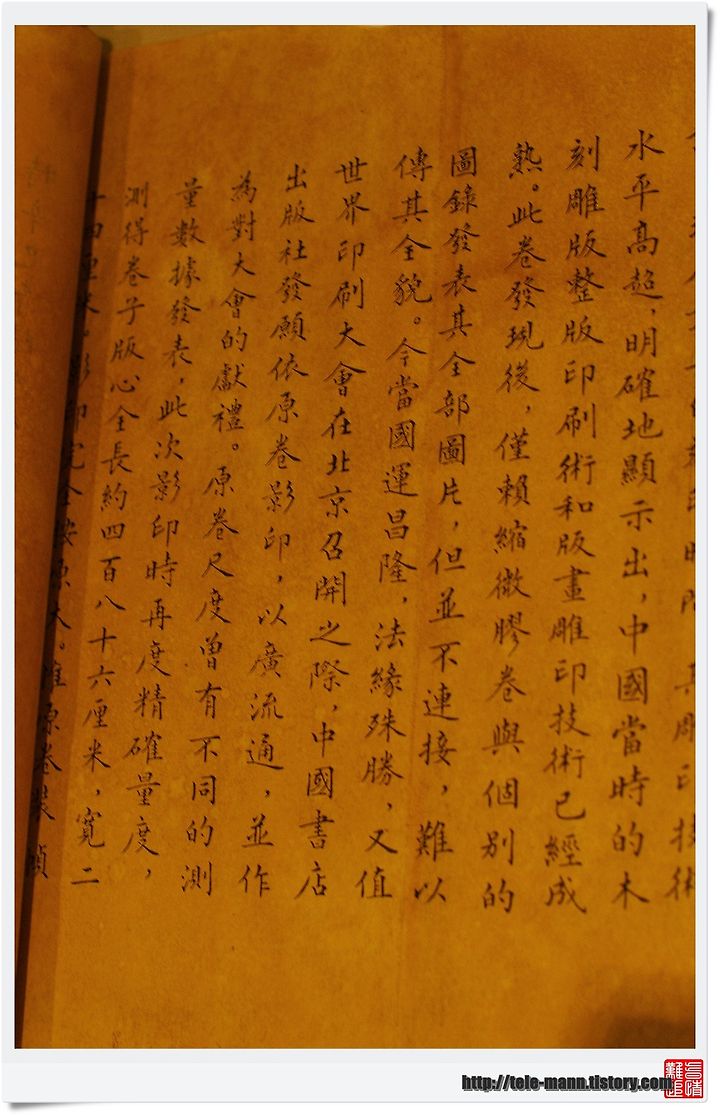 其雕印技術
水平高超，明確地顯示出，中國當時的木
刻雕版整版印刷術和版畫雕印技術已經成
熟。此卷發現後，僅賴縮微膠卷與個別的
圖錄發表其全部圖片，但並不連接，難以
傳其全貌。今當國運昌隆，法緣殊勝，又值
世界印刷大會在北京召開之際，中國書店
出版社發願依原卷影印，以廣流通，並作
為對大會的獻禮。原卷尺度曾有不同的測
量數據發表，此次影印時再度精確量度，
測得卷子版心全長約四百八十六厘米，寬二
十四厘米。影印完全按原大。惟原卷裝幀
http://tele-mann.tistory.com